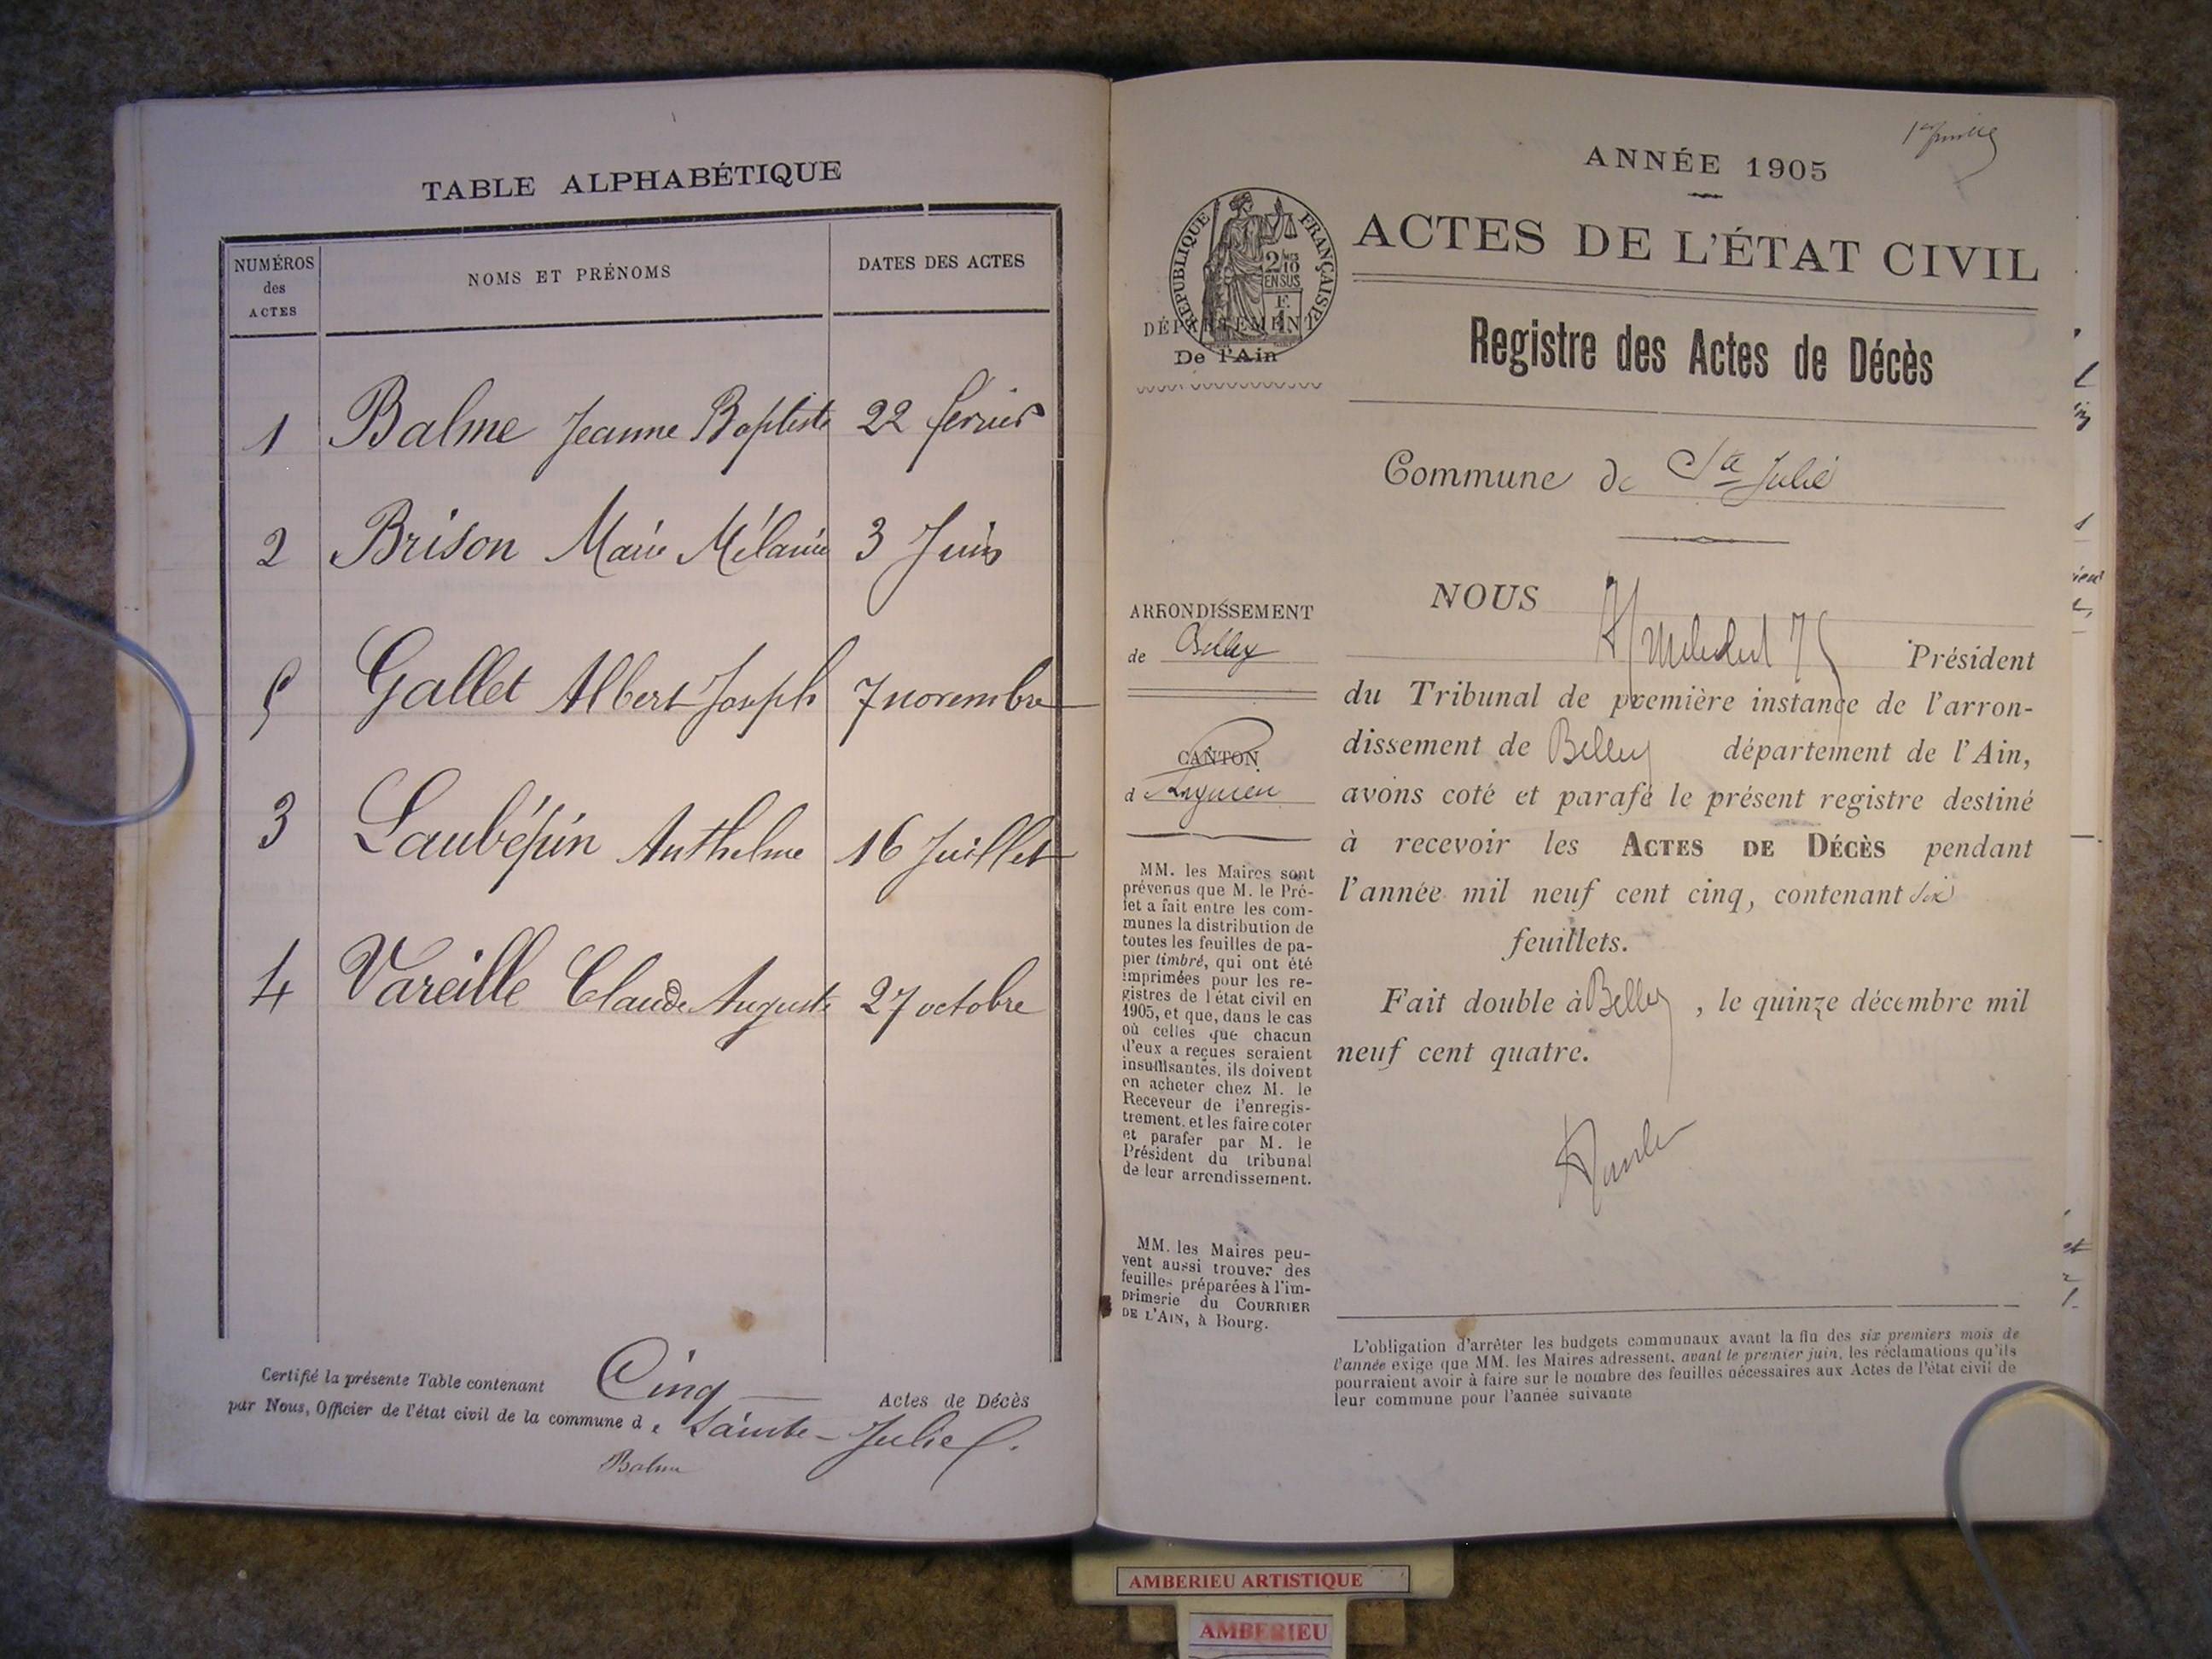 TABLE ALPHABÉTIQUE
NUMÉROS
des
ACTES
NOMS ET PRÉNOMS
DATES DES ACTES
1 Balme Jeanne Baptiste 22 février
2 Brison Marie Mélanie 3 Juin
5 Gallet Albert Joseph 7 novembre
3 Laubépin Anthelme 16 Juillet
4 Vareille Claude Auguste 27 octobre
Certifié la présente Table contenant Cinq Actes de Décès
par Nous, Officier de l'état civil de la commune de Sainte-Julie.
Balme
ANNÉE 1905
RÉPUBLIQUE FRANÇAISE
2/10
EN SUS
DÉPARTEMENT
De l'Ain
ACTES DE L'ÉTAT CIVIL
Registre des Actes de Décès
Commune de Ste Julie
ARRONDISSEMENT
de Belley
CANTON
d Lagnieu
MM. les Maires sont
prévenus que M. le Pré-
fet a fait entre les com-
munes la distribution de
toutes les feuilles de pa-
pier timbré, qui ont été
imprimées pour les re-
gistres de l'état civil en
1905, et que, dans le cas
où celles que chacun
d'eux a reçues seraient
insuffisantes, ils doivent
en acheter chez M. le
Receveur de l'enregis-
trement, et les faire coter
et parafer par M. le
Président du tribunal
de leur arrondissement.
MM. les Maires peu-
vent aussi trouver des
feuilles préparées à l'im-
primerie du COURRIER
DE L'AIN, à Bourg.
NOUS
Président
du Tribunal de première instance de l'arron-
dissement de Belley département de l'Ain,
avons coté et parafé le présent registre destiné
à recevoir les ACTES DE DÉCÈS pendant
l'année mil neuf cent cinq, contenant six
feuillets.
Fait double à Belley, le quinze décembre mil
neuf cent quatre.
L'obligation d'arrêter les budgets communaux avant la fin des six premiers mois de
l'année exige que MM. les Maires adressent, avant le premier juin, les réclamations qu'ils
pourraient avoir à faire sur le nombre des feuilles nécessaires aux Actes de l'état civil de
leur commune pour l'année suivante
AMBERIEU ARTISTIQUE
AMBERIEU